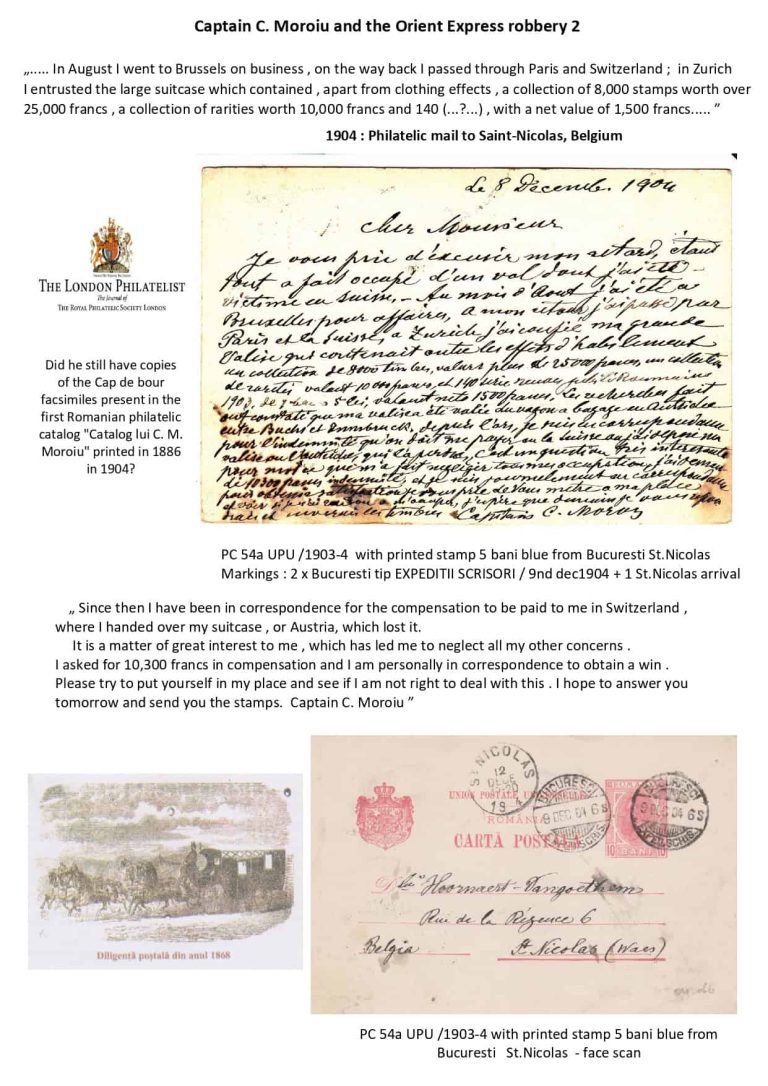 Captain C. Moroiu and the Orient Express robbery 2
„..... In August I went to Brussels on business , on the way back I passed through Paris and Switzerland ; in Zurich
I entrusted the large suitcase which contained , apart from clothing effects , a collection of 8,000 stamps worth over
25,000 francs , a collection of rarities worth 10,000 francs and 140 (...?...) , with a net value of 1,500 francs..... ”
1904 : Philatelic mail to Saint-Nicolas, Belgium
Le 8 Décembr. 1904
Cher Monsieur
Je vous prie d'excuser mon retard, étant
tout a fait occupé d'un vol dont j'ai été
victime en Suisse, - Au mois d'Aout j'ai été a
Bruxelles pour affaires, a mon retour j'ai passé par
Paris et la Suisse, a Zurich j'ai confié ma grande
Valise qui contenait outre les effets d'habillement
un collection de 8000 timbres, valeurs plus de 25000 francs, un collection
de raretés valant 10000 francs, et 140
1903, de 5 lei, valant net 1500 francs, Les recherches fait
ont constaté que ma valise a été volée du wagon a bagage en Autriche
entre Buchs et Innsbruck, depuis lors, je suis en correspondance
pour l'indemnité qu'on doit me payer ou la Suisse ou j'ai déposé ma
valise ou l'Autriche, qui l'a perdue, C'est un question très interessante
pour moi ce que m'a fait negliger tous mes occupations, j'ai demandé
de 10300 francs indemnité, et je suis journelement en correspondance
pour obtenir satisfaction, je vous prie de vous mètre a ma place
et voir si j'ai raison a m'occuper, j'espère que demain je vous
et enverrai les timbres Capitain C. Moroiu
THE LONDON PHILATELIST
The Journal of
THE ROYAL PHILATELIC SOCIETY LONDON
Did he still have copies
of the Cap de bour
facsimiles present in the
first Romanian philatelic
catalog "Catalog lui C. M.
Moroiu" printed in 1886
in 1904?
PC 54a UPU /1903-4 with printed stamp 5 bani blue from Bucuresti St.Nicolas
Markings : 2 x Bucuresti tip EXPEDITII SCRISORI / 9nd dec1904 + 1 St.Nicolas arrival
„ Since then I have been in correspondence for the compensation to be paid to me in Switzerland ,
where I handed over my suitcase , or Austria, which lost it.
It is a matter of great interest to me , which has led me to neglect all my other concerns .
I asked for 10,300 francs in compensation and I am personally in correspondence to obtain a win .
Please try to put yourself in my place and see if I am not right to deal with this . I hope to answer you
tomorrow and send you the stamps. Captain C. Moroiu ”
Diligență poștală din anul 1868
ST NICOLAS
12
DECE
19 4
UNION POSTALE UNIVERSELLE
ROMÂNIA
CARTĂ POSTALĂ
BUCURESCI
9 DEC 04 6S
BUCURESCI
9 DEC 04 6S
10 BANI 10
D lui Hoornaert-Vangoethem
Rue de la Régence 6
Belgia St Nicolas (Waes)
PC 54a UPU /1903-4 with printed stamp 5 bani blue from
Bucuresti St.Nicolas - face scan